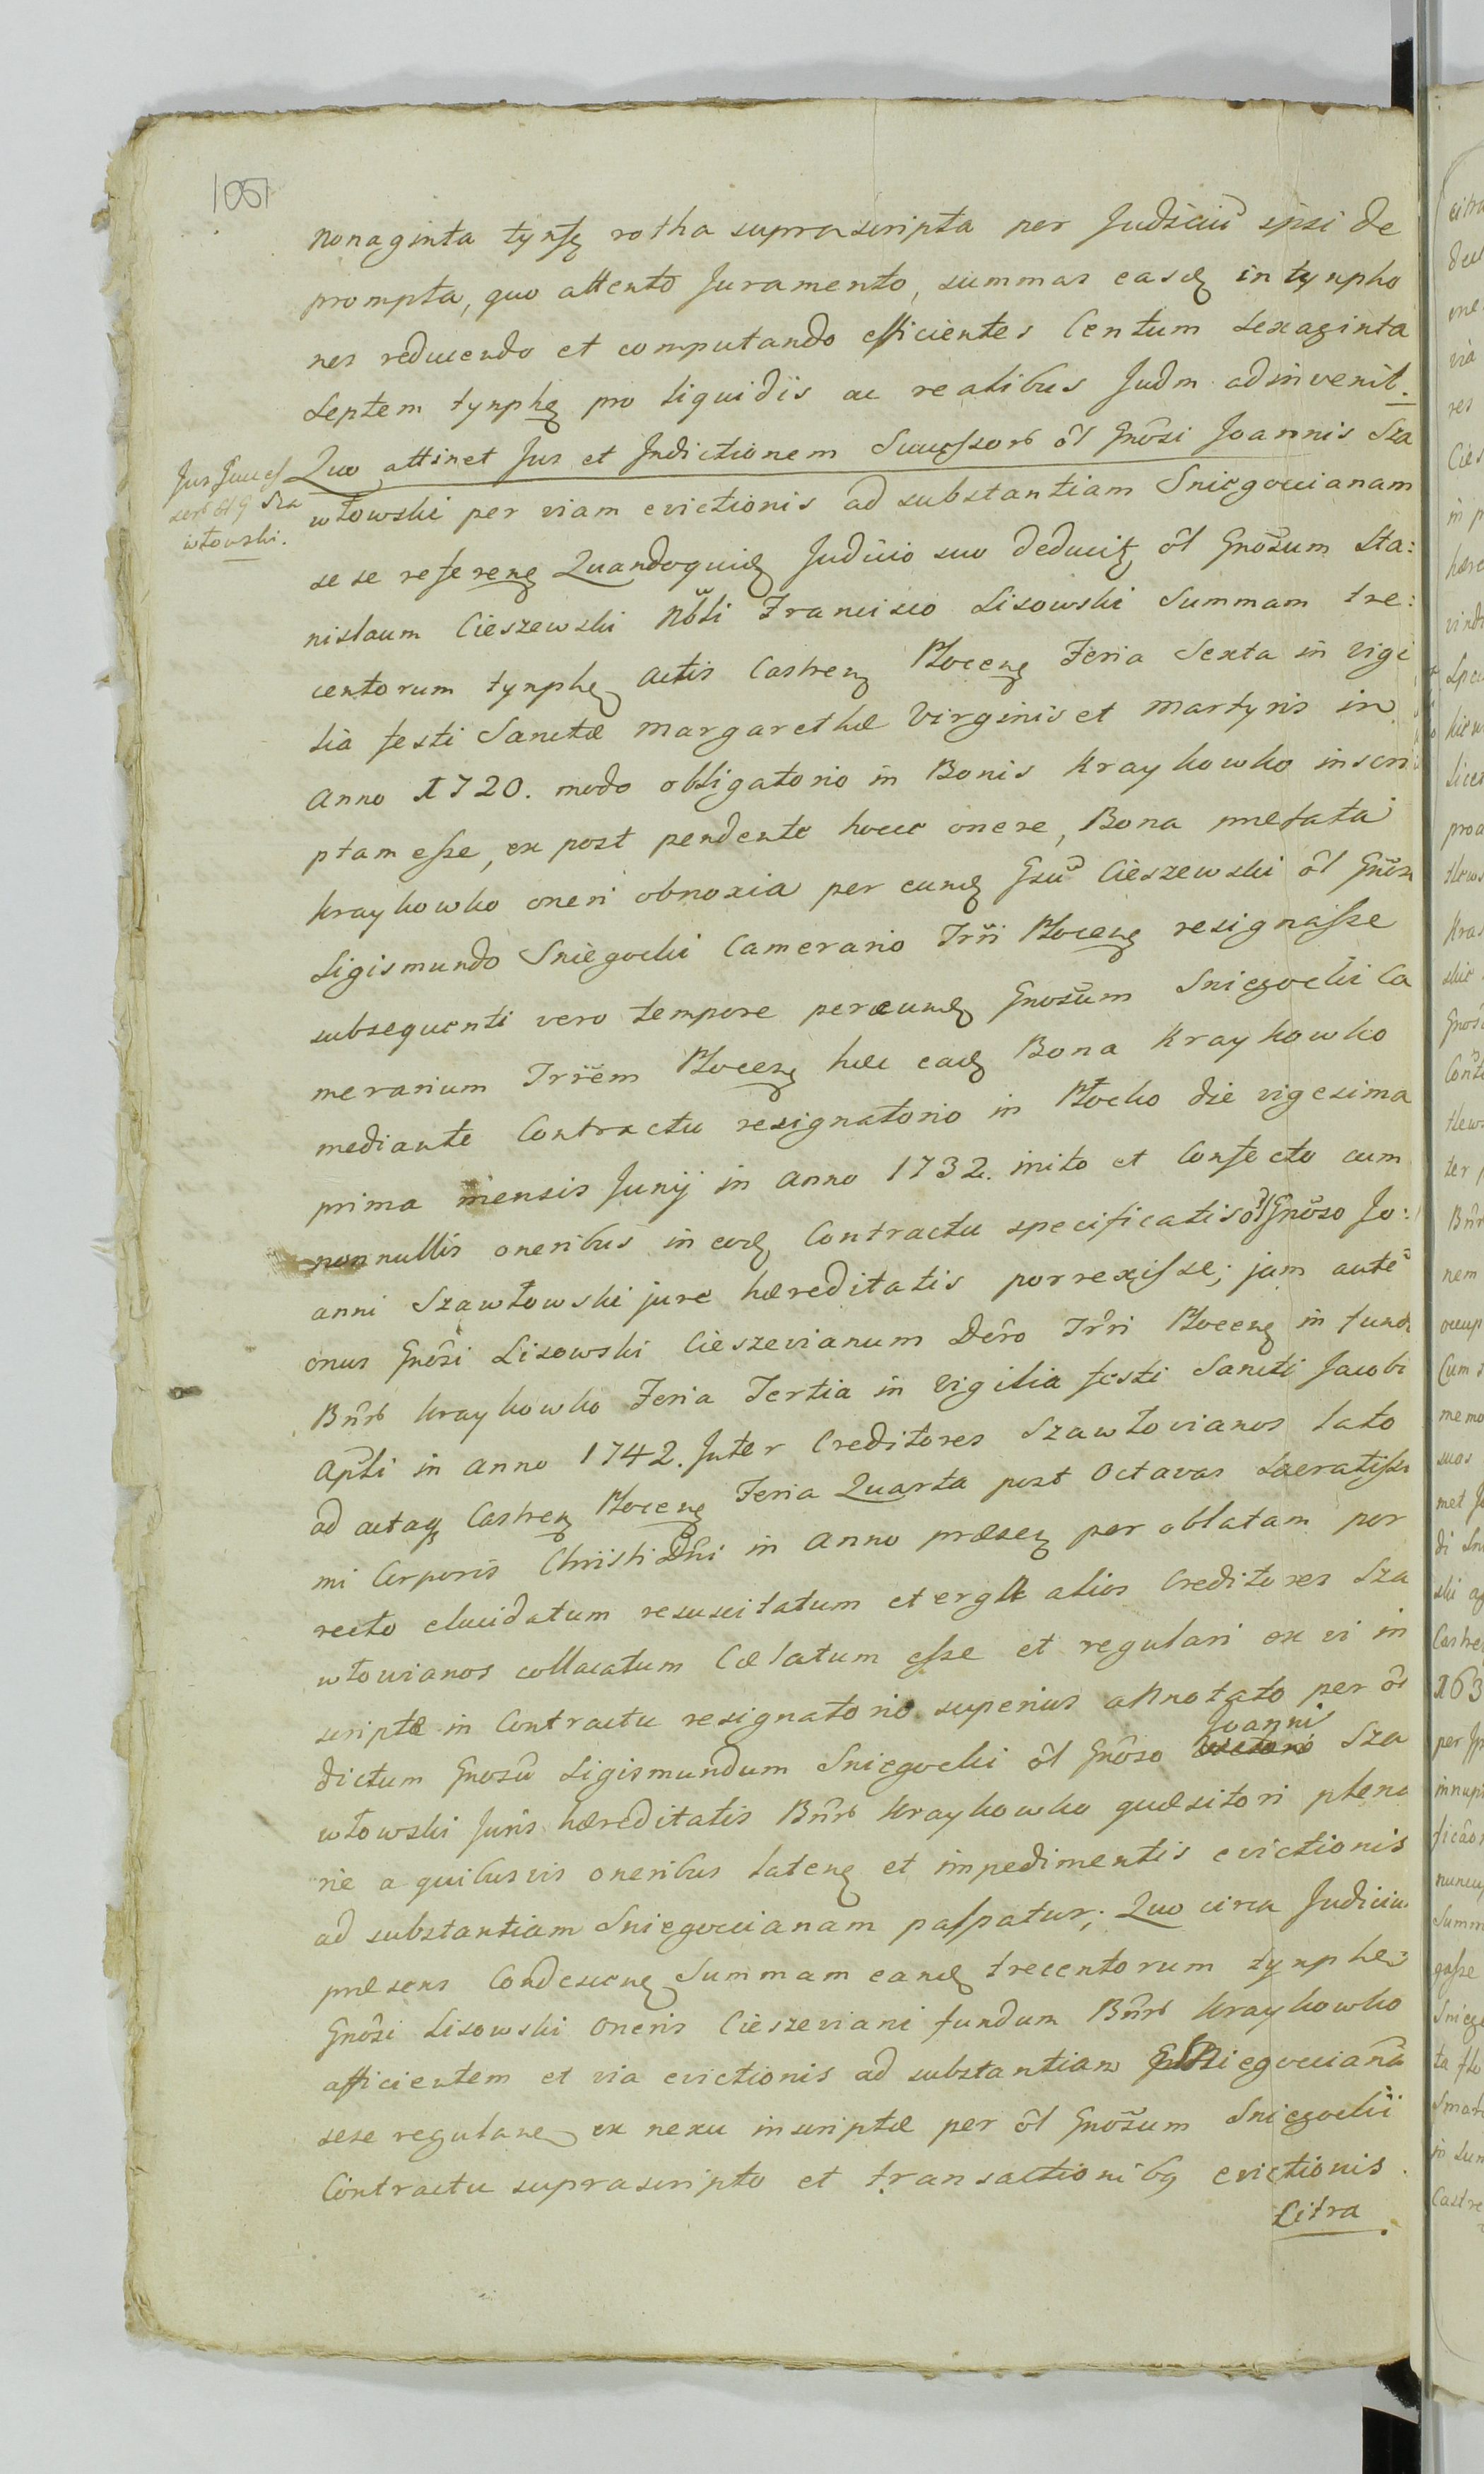 1051
nonaginta tynfȩ rotha suprascripta per Judiciũ ipsi de
prompta, quo attento Juramento, summas easdȩ in tynpho
nes reducendo et computando efficientes Centum sexaginta
septem tynphȩ pro liquidis ac realibus Judm adinvenit.
Jus Succes
sor ol g Sza
włowski.
Quo attinet Jus et Indictionem Successorb ôl Gnôsi Joannis Sza
włowski per viam evictionis ad substantiam Sniegoccianam
se se referenȩ Quandoquidȩ Judicio suo deducitȩ ôl Gnosum Sta:
nislaum Cieszewski Nbli Francisco Lisowski Summam tre:
centorum tynphȩ Actis Castrenȩ Płocenȩ Feria Sexta in vigi
lia festi Sanctæ Margarethæ Virginis et Martyris in
Anno 1720. modo obligatorio in Bonis Kraykowko inscri
ptam esse, ex post pendente hocce onere, Bona præfata
Kraykowko oneri obnoxia per eundȩ Gsũ Cieszewski ôl Gnôso
Sigismundo Sniegocki Camerario Trri Płocenȩ resignasse
subsequenti vero tempore per eundȩ Gnosum Sniegocki Ca
merarium Trrem Płocenȩ hæc eadȩ Bona Kraykowko
mediante Contractu resignatorio in Płocko die vigesima
prima mensis Junij in Anno 1732. inito et Confecto cum
nonnullis oneribus in eodȩ Contractu specificatis ôl Gnôso Jo:
anni Szawłowski jure hæreditatis porrexisse; jam autẽ
onus Gnôsi Lisowski Cieszevianum Dẽro Trri Płocenȩ in fundi
Bnrb Kraykowko Feria Tertia in vigilia festi Sancti Jacobi
Apłi in Anno 1742. Inter Creditores Szawłovianos lato
ad actaqȝ Castrenȩ Płocenȩ Feria Quarta post Octavas Sacratissi
mi Corporis Christi Dni in Anno præsenȩ per oblatam por
recto elucidatum resuscitatum et erga alios Creditores Sza
włovianos collocatum Cælatum esse et regulari ex vi in
scriptæ in Contractu resignatorio superius annotato per ôl
dictum Gnosũ Sigismundum Sniegocki ôl Gnôso Joanni Sza
włowski Juris hæreditatis Bnrb Kraykowko quæsitori plena
rie a quibusvis oneribus latenȩ et impedimentis evictionis
ad substantiam Sniegoccianam paspatur; Quo circa Judiciu
præsens Condescenȩ Summam eandȩ trecentorum tynphȩ
Gnôsi Lisowski Oneris Cieszeviani fundum Bnrb Kraykowko
afficientem et via evictionis ad substantiam Sniegoccianã
sese regulanȩ ex nexu inscriptæ per ôl Gnosum Sniegocki
Contractu suprascripto et transactionibȝ evictionis.
Citra